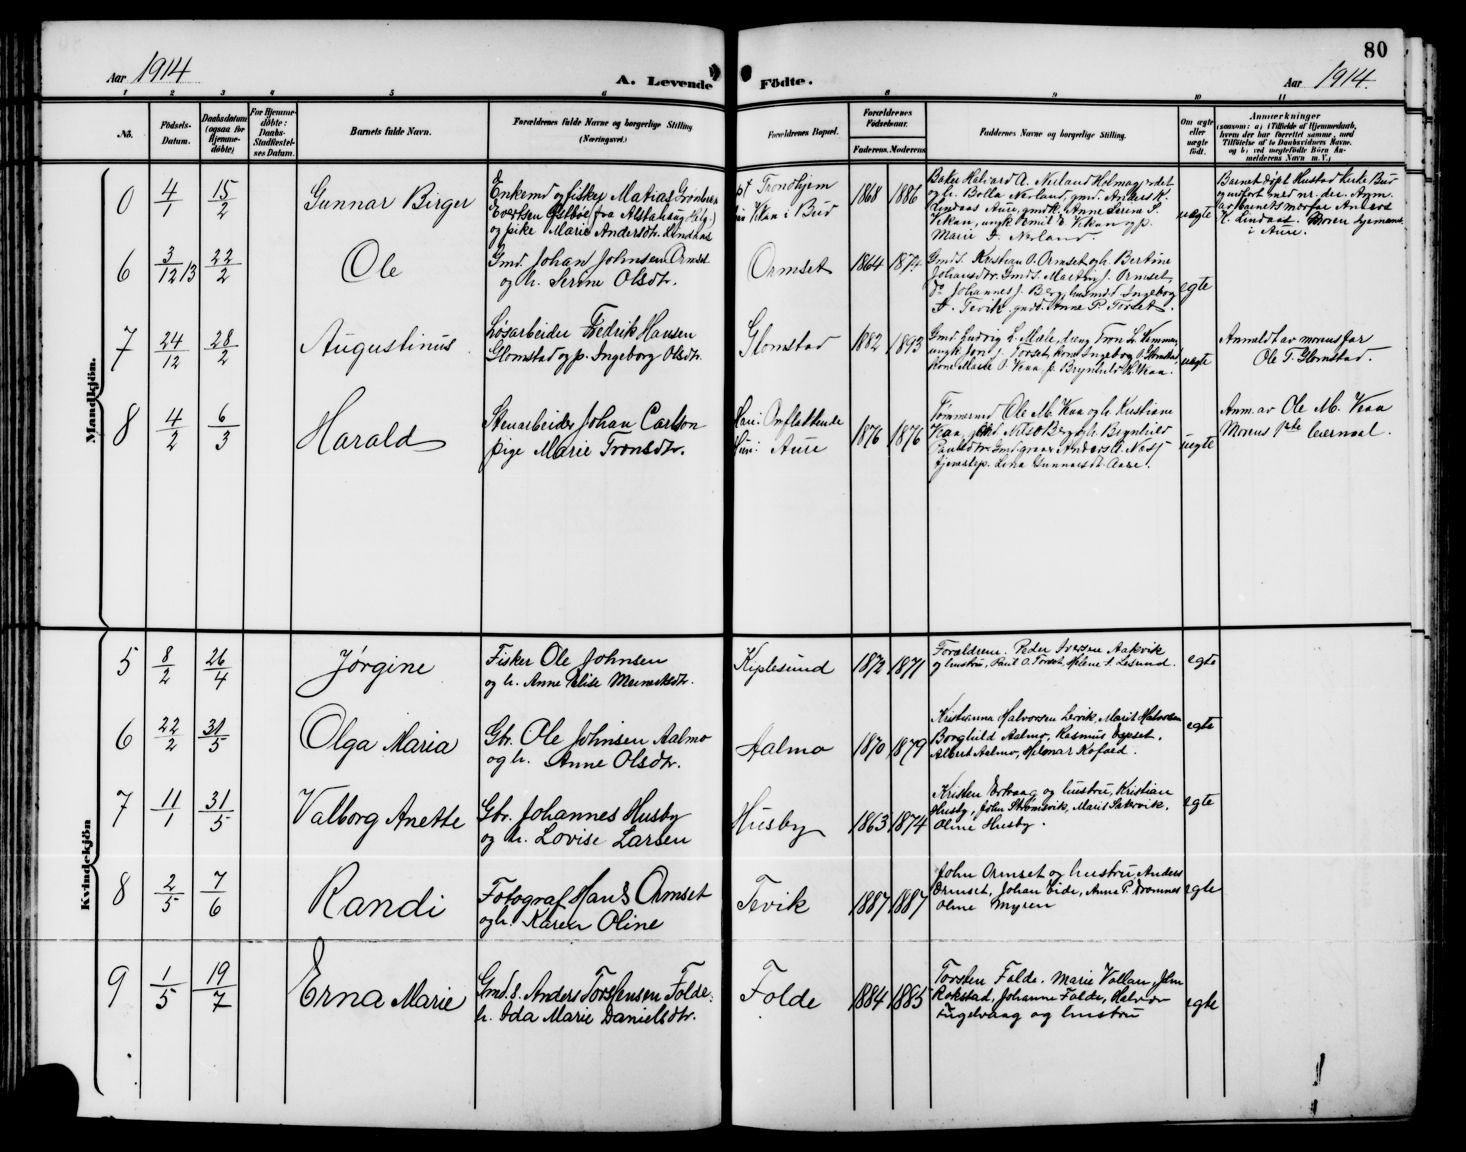 80
Aar 1914
A. Levende Fødte.
Aar 1914.
1 2 3 4 5 6 8 9 10 11
No.
Fødsels-Datum.
Daabsdatum (ogsaa for Hjemmedøbte)
For Hjemmedøbte: Daabs-Stadfæstelses Datum.
Barnets fulde Navn.
Forældrenes fulde Navne og borgerlige Stilling (Næringsvei.)
Forældrenes Bopæl.
Forældrenes Fødselsaar. Faderens. Moderens.
Faddernes Navne og borgerlige Stilling.
Om ægte eller uægte født.
Anmærkninger
Mandkjön.
0 4/1 15/2 Gunnar Birger
Enkemd og fisker Matias
Evertsen fra Alstahaug
og pike Marie Andersdtr. Lindaas
Trondhjem
Vikan i Bud
1868 1886
Baker Halvard A. Neiland
og h. Bolla Neiland, gmd. Anders K.
Lindaas Aure, gmdk. Anne
Vikan, ungk. Emil Vikan og p.
Marie Neiland.
uægte
Barnet døpt Hustad kirke Bud
av barnets morfar Anders
K. Lindaas.
i Aure.
6 3/12 13 22/2 Ole
Gmd. Johan Johnsen Ormset
og h. Serine Olsdtr.
Ormset
1864 1874
Gmds. Kristian O. Ormset og h. Bertine
Johansdtr. Gmds. Martin J. Ormset,
Do Johannes J. Berg, husmd. Ingeborg
Tevik, gmds. Anne P. Torset.
egte
7 24/12 28/2 Augustinus
Løsarbeider Fredrik Hansen
Glomstad og p. Ingeborg Olsdtr.
Glomstad
1882 1893
Gmd. Ludvig L. Mæle, dreng Tron L.
ungk. Jon J. Torset, kone Ingeborg O. Glomstad,
kone Marie O. Vean, p. Brynhild K. Vean.
uegte
Anmeldt av morens far
Ole T. Glomstad.
8 4/2 6/3 Harald
Stenarbeider Johan Carlson
pige Marie Tronsdtr.
Han: Omflakkende
Hun: Aure
1876 1876
Tømmermd Ole M. Vean og h. Kristiane
Vean, Nils O Berg og h. Brynhild
Paulsdtr. Gmd. Anders A. Nesj
tjenestep. Lina Gunnarsdt. Aure.
uegte
Anm. av Ole M. Vean
Morens 1ste leiermaal.
Kvindekjön
5 8/2 26/4 Jørgine
Fisker Ole Johnsen
og h. Anne Elise
Kjplesund
1872 1871
Forældrene. Peder Iversen Aakvik
og hustru, Paul O. Torset, Helene A. Lesund.
egte
6 22/2 31/5 Olga Maria
Gbr. Ole Johnsen Aalmo
og h. Anne Olsdtr.
Aalmo
1870 1879
Kristianna Halvorsen Lervik, Marit Halvorsen
Borghild Aalmo, Rasmus
Albert Aalmo, Hilmar Kofoed.
egte
7 11/1 31/5 Valborg Anette
Gbr. Johannes Husby
og h. Lovise Larsen
Husby
1863 1874
Kristen Ertvaag og hustru, Kristian
Husby, John Strømsvik, Marit Sakvik,
Oline Husby.
egte
8 2/5 7/6 Randi
Fotograf Hans Ormset
og h. Karen Oline
Tevik
1887 1887
John Ormset og hustru Anders
Ormset, Johan Eide, Anne P. Dromnes
Oline Myren
egte
9 1/5 19/7 Erna Marie
Gmd.s. Anders Torstensen Folde.
h. Ida Marie Danielsdtr.
Folde
1884 1885
Torsten Folde. Marie Vollan, John
Rokstad, Johanne Folde, Halvor
Engelvaag og hustru
egte